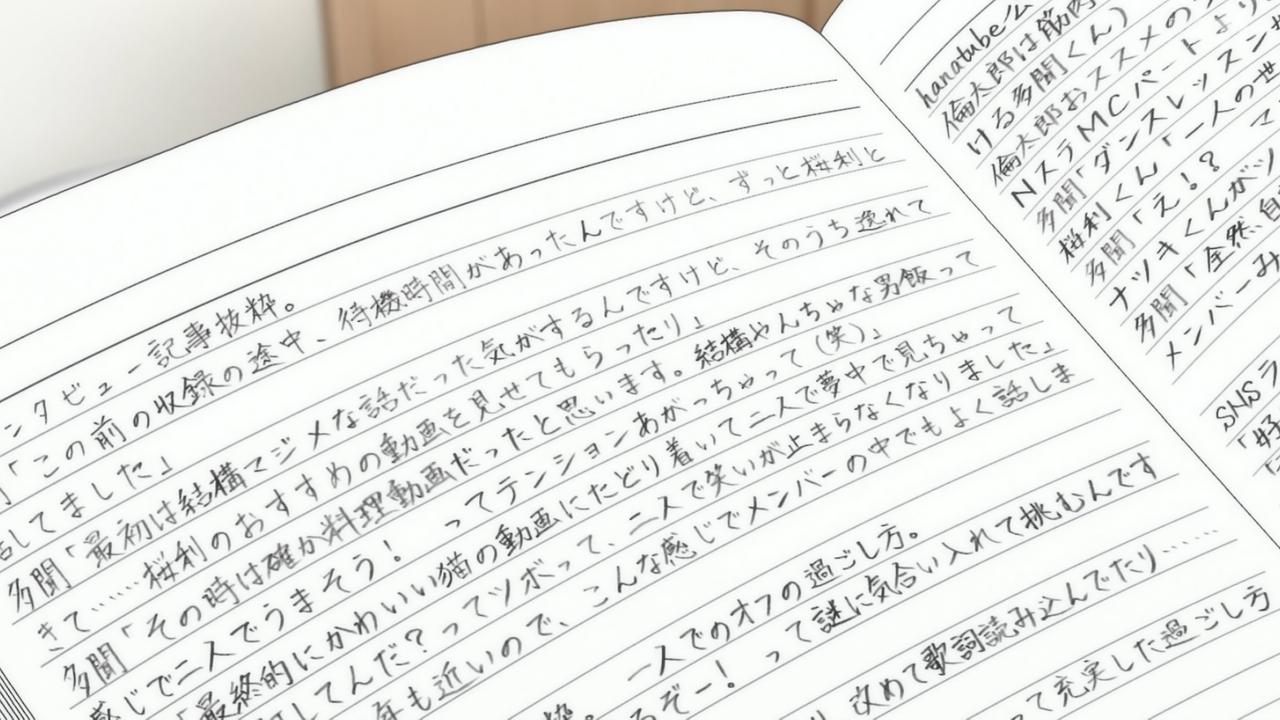 ンタビュー記事抜粋。
「この前の収録の途中、待機時間があったんですけど、ずっと桜利と
話してました」
多聞「最初は結構マジメな話だった気がするんですけど、そのうち逸れて
きて……桜利のおすすめの動画を見せてもらったり」
多聞「その時は確か料理動画だったと思います。結構やんちゃな男飯って
感じで二人でうまそう！　ってテンションあがっちゃって（笑）」
「最終的にかわいい猫の動画にたどり着いて二人で夢中で見ちゃって
してんだ？ってツボって、二人で笑いが止まらなくなりました」
年も近いので、こんな感じでメンバーの中でもよく話しま
粋。　一人でのオフの過ごし方。
るぞー！　って謎に気合い入れて挑むんです
改めて歌詞読み込んでたり……
って充実した過ごし方
hanatube公
倫太郎は筋肉
ける多聞くん）
倫太郎おススメの
NスラMCパートより
多聞「ダンスレッスン
桜利くん「一人の世
多聞「え！？　マ
ナツキくんがツ
多聞「全然、自
メンバーみ
SNSラ
「好